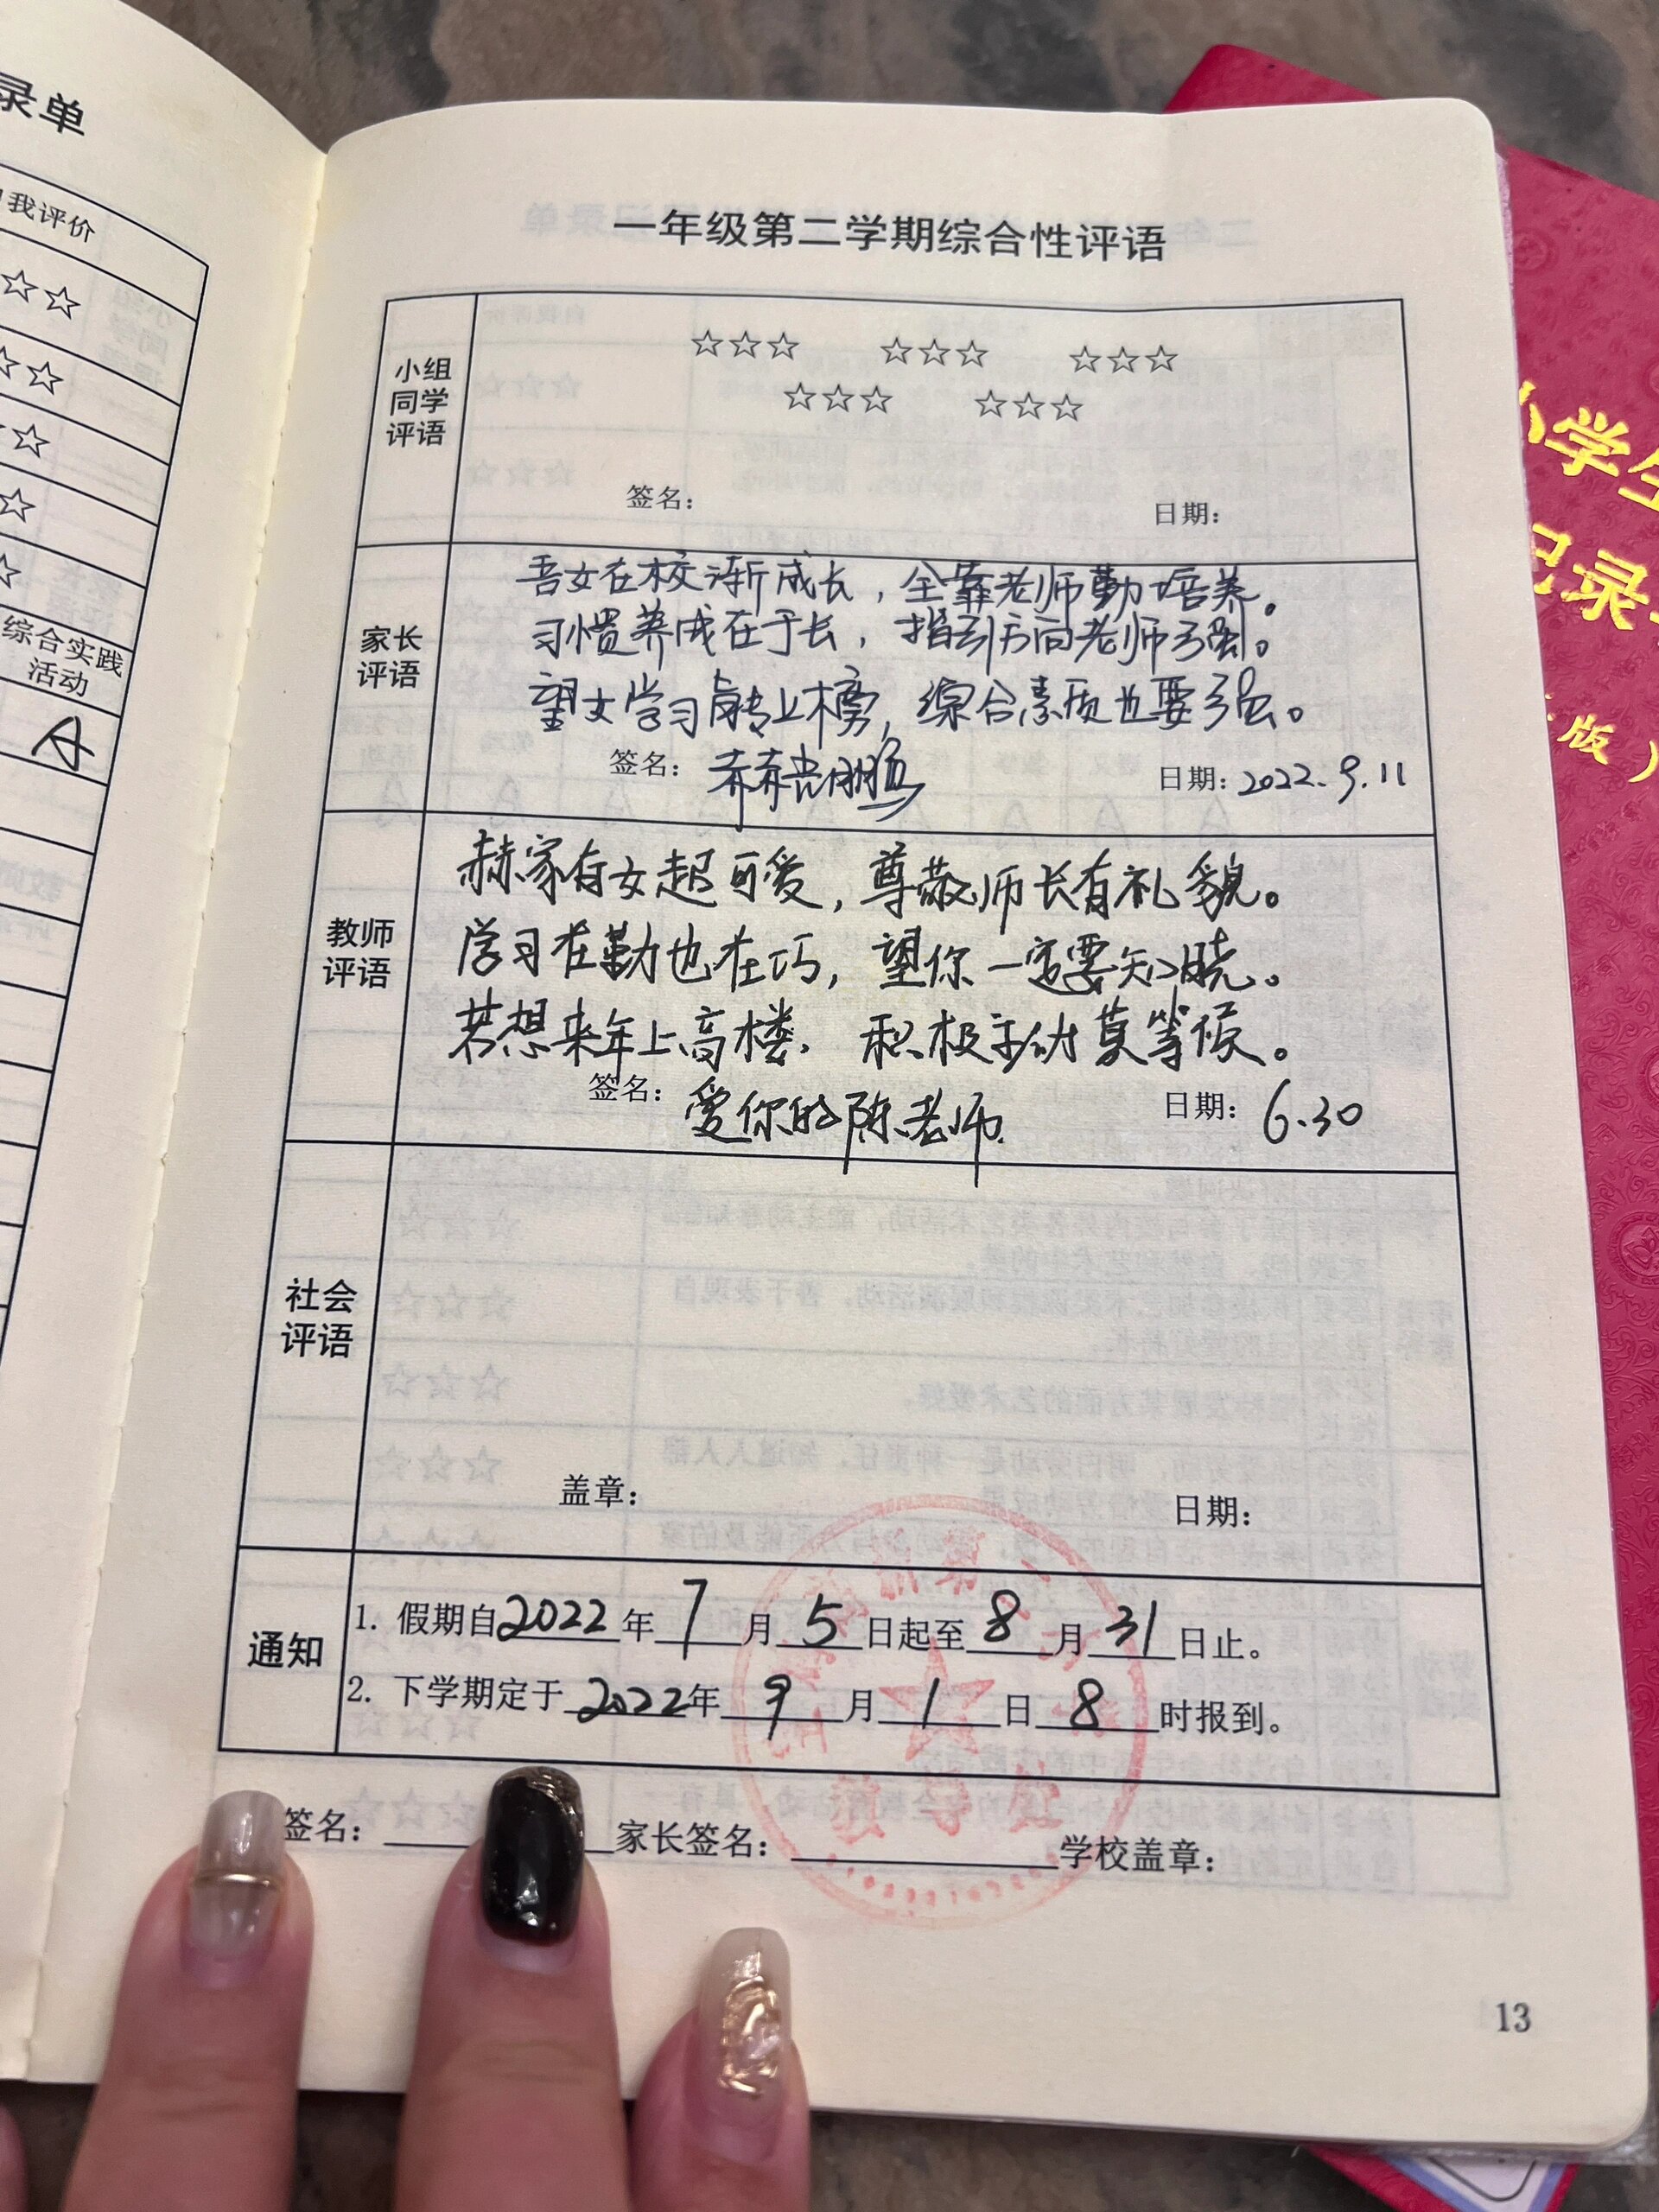 录单
我评价
☆☆
☆☆
☆
☆
☆
综合实践
活动
A
一年级第二学期综合性评语
小组
同学
评语
☆☆☆ ☆☆☆ ☆☆☆
☆☆☆ ☆☆☆
签名： 日期：
家长
评语
吾女在校渐成长，全靠老师勤培养。
习惯养成在于长，指引方向老师强。
望女学习皆上榜，综合素质也要强。
签名： 日期：2022.9.11
教师
评语
赫家有女超可爱，尊敬师长有礼貌。
学习在勤也在巧，望你一定要知晓。
若想来年上高楼，积极主动莫等候。
签名：爱你的陈老师 日期：6.30
社会
评语
盖章： 日期：
通知
1. 假期自2022年7月5日起至8月31日止。
2. 下学期定于2022年9月1日8时报到。
签名： 家长签名： 学校盖章：
教学处
13
小学生
记录
版）